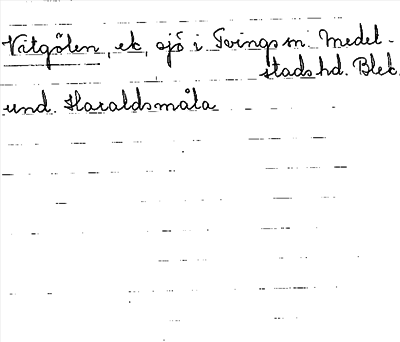 Vitgölen, ek, sjö i Tvings sn. Medel-
stads hd. Blek.
und. Haraldsmåla